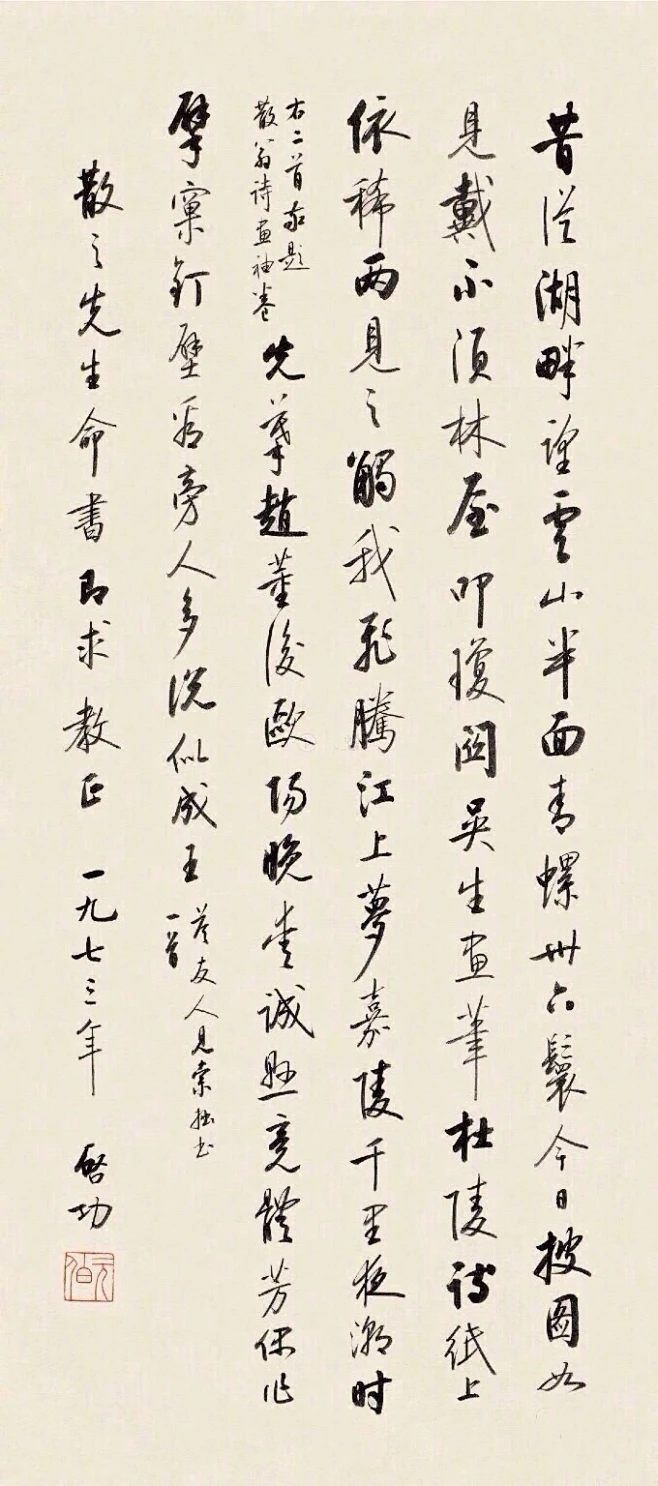 昔從湖畔望雲山半面青螺卅六鬟今日披圖如
見戴不須林屋叩瓊關吳生畫筆杜陵詩紙上
依稀兩見之觸我飛騰江上夢嘉陵千里夜潮時
右二首敬題
散翁詩畫袖卷
先摹趙董後歐陽晚愛誠懸竟體芳偶作
擘窠釘壁看旁人多說似成王
答友人見索拙書
一首
散之先生命書即求教正 一九七三年 啓功
元白